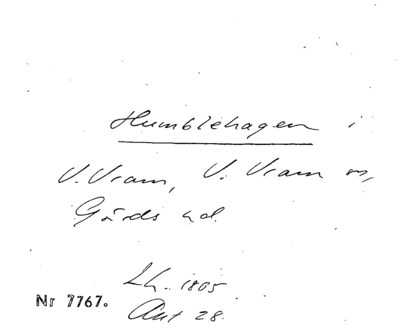 Humblehagen i
V. Vram, V. Vram sn,
Gärds hd.
Lh. 1805
Nr 7767. Akt 28.